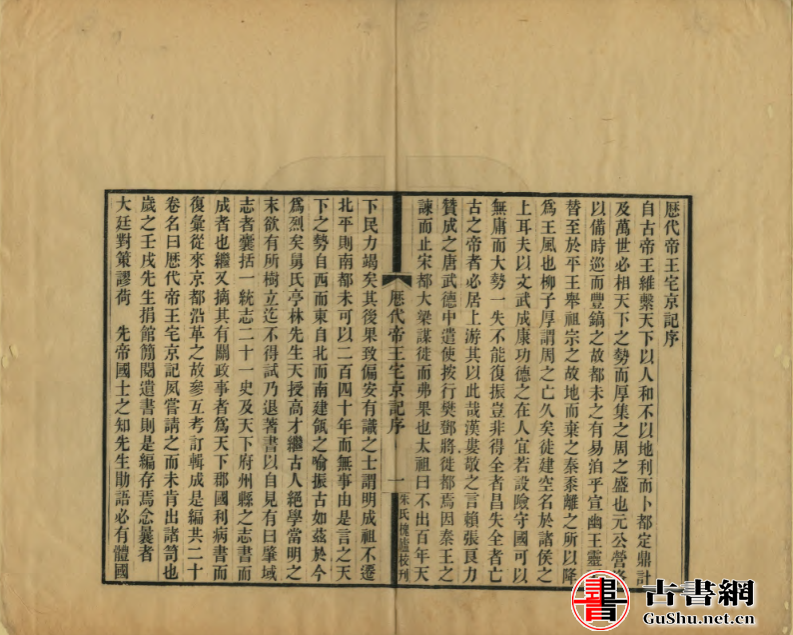 歷代帝王宅京記序
自古帝王維繫天下以人和不以地利而卜都定鼎計
及萬世必相天下之勢而厚集之周之盛也元公營
以備時巡而豐鎬之故都未之有易洎乎宣幽王靈
替至於平王舉祖宗之故地而棄之秦黍離之所以降
爲王風也柳子厚謂周之亡久矣徒建空名於諸侯之
上耳夫以文武成康功德之在人宜若設險守國可以
無庸而大勢一失不能復振豈非得全者昌失全者亡
古之帝者必居上游其以此哉漢婁敬之言賴張良力
贊成之唐武德中遣使按行樊鄧將徙都焉因秦王之
諫而止宋都大梁謀徙而弗果也太祖曰不出百年天
歷代帝王宅京記序
一
朱氏槐廬校刊
下民力竭矣其後果致偏安有識之士謂明成祖不遷
北平則南都未可以二百四十年而無事由是言之天
下之勢自西而東自北而南建瓴之喻振古如茲於今
爲烈矣舅氏亭林先生天授高才繼古人絕學當明之
末欲有所樹立迄不得試乃退著書以自見有曰肇域
志者囊括一統志二十一史及天下府州縣之志書而
成者也繼又摘其有關政事者爲天下郡國利病書而
復彙從來京都沿革之故參互考訂輯成是編共二十
卷名曰歷代帝王宅京記夙嘗請之而未肯出諸笥也
歲之壬戌先生捐館簡閱遺書則是編存焉念曩者
大廷對策謬荷 先帝國士之知先生勛語必有體國
古書網
GuShu.net.cn
書